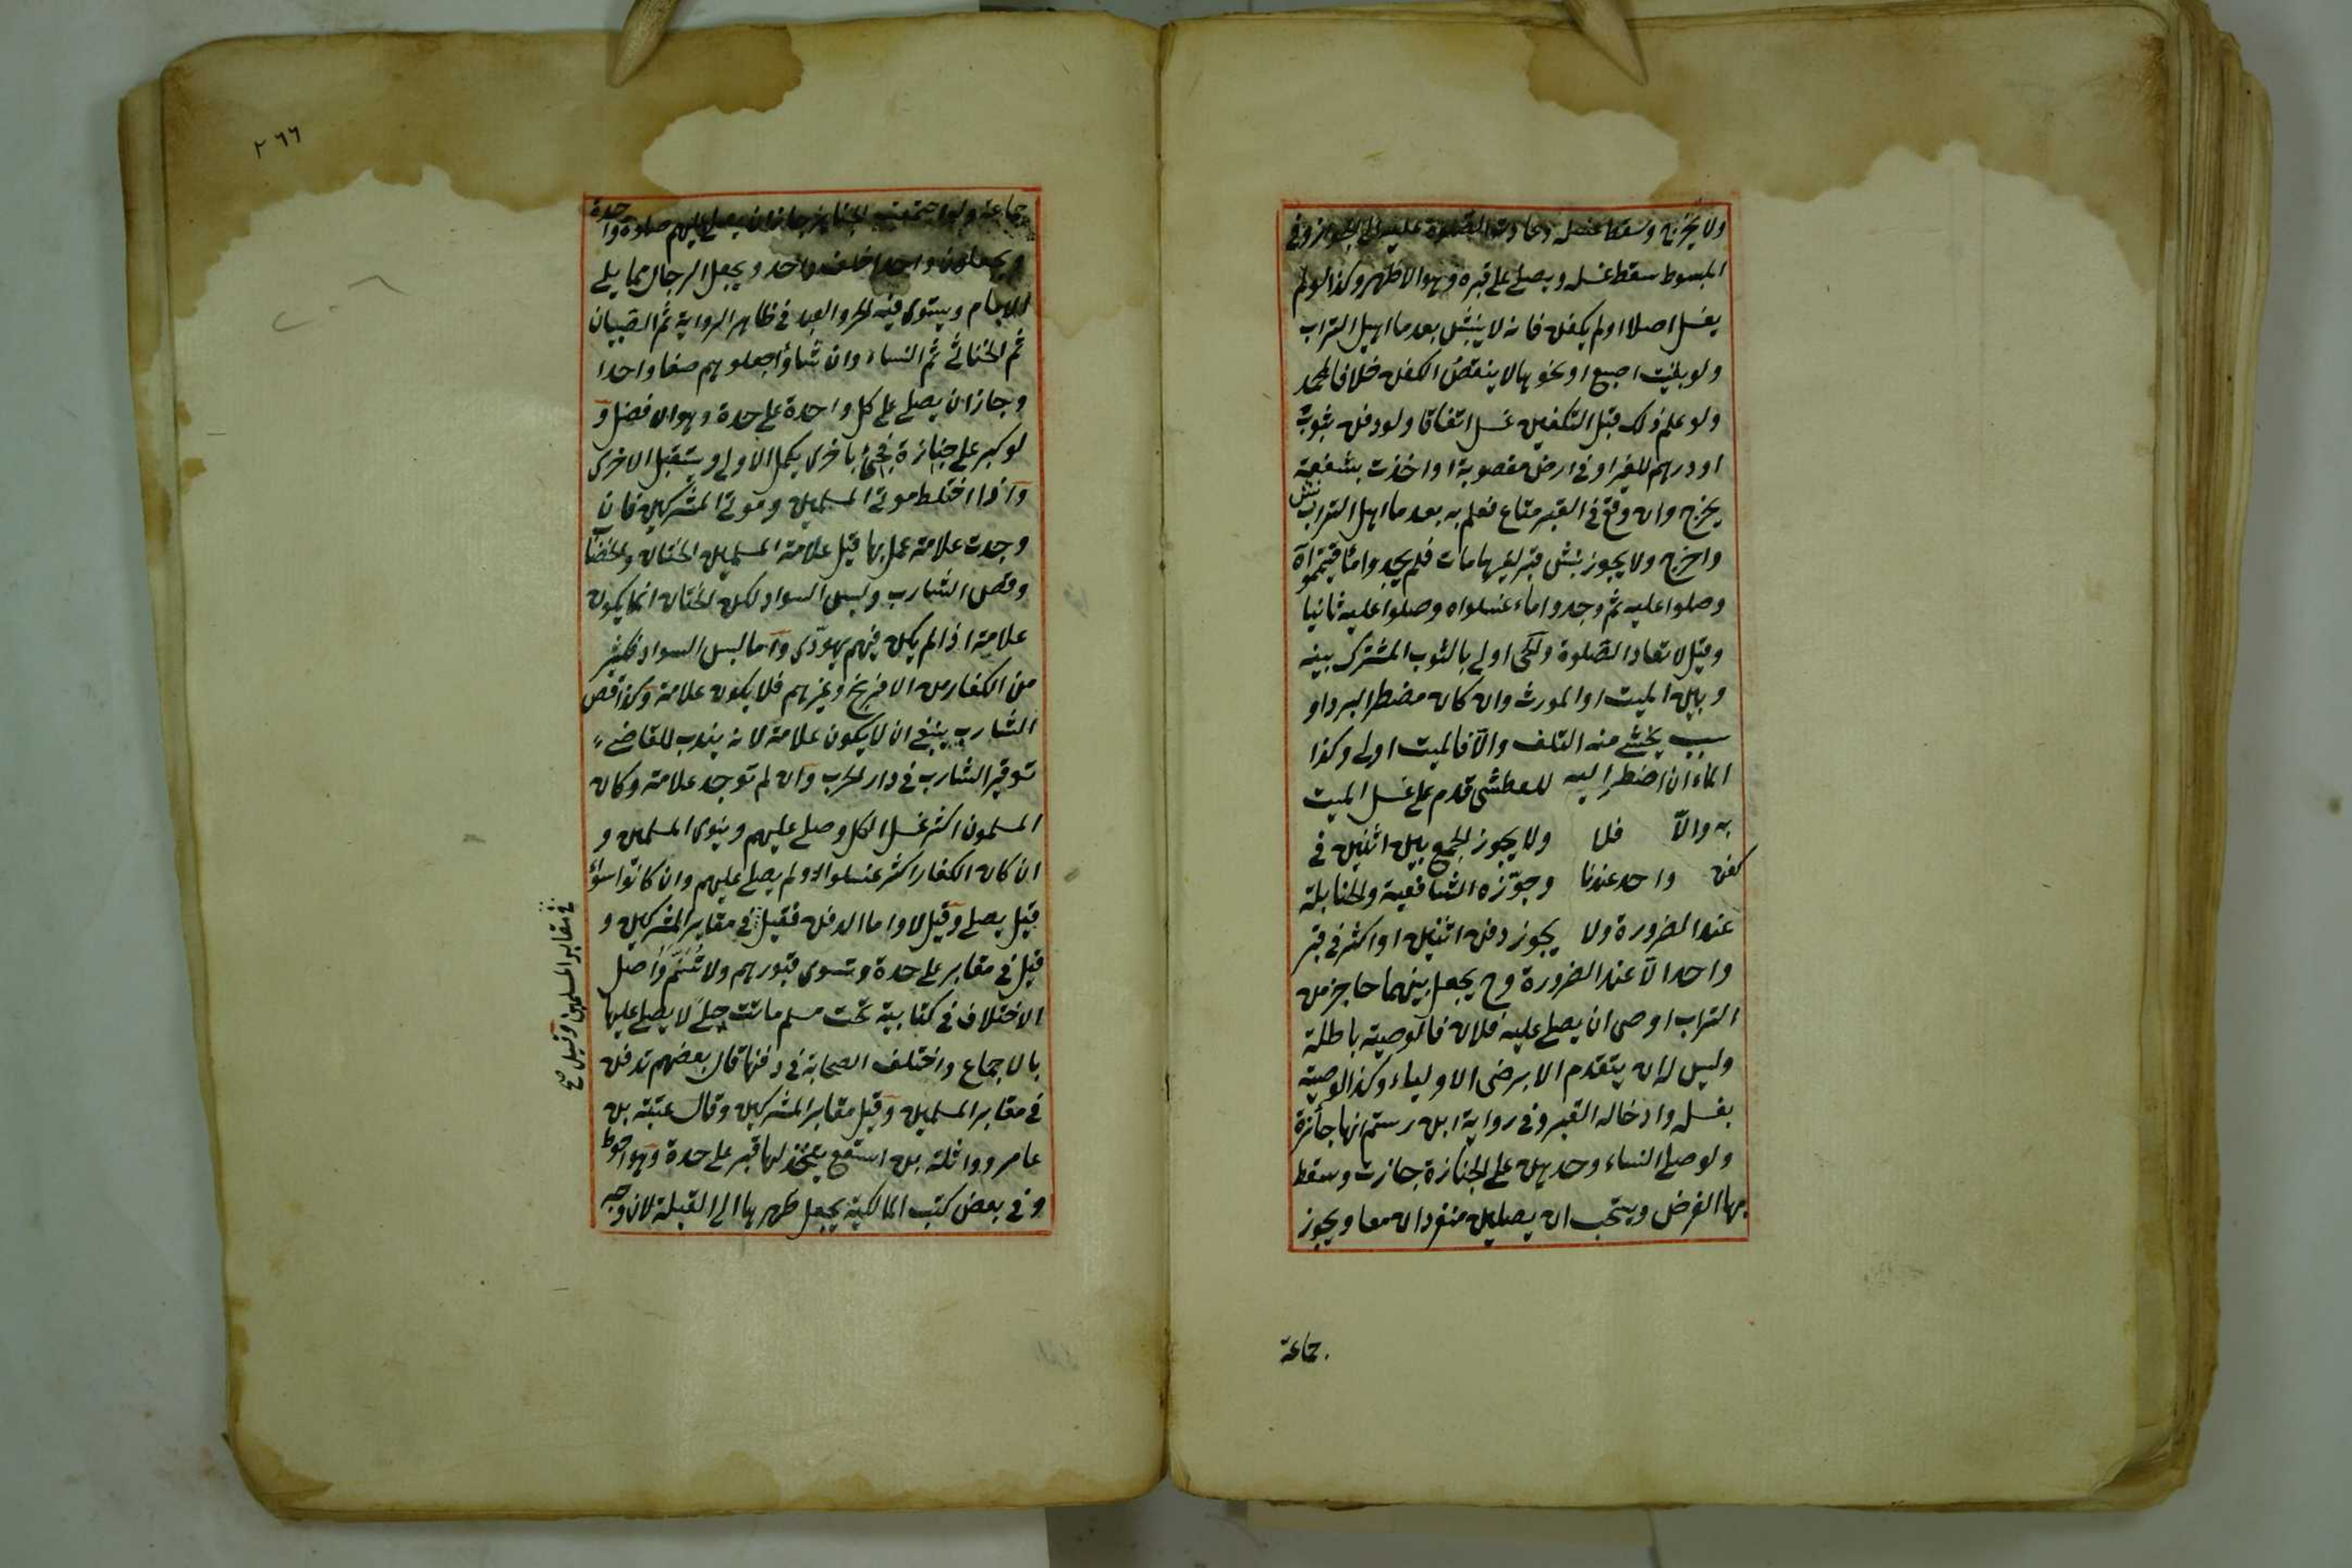 ولا يخرج وسقط غسله وعادت الصلوة عليه الى الجواز وفي
المبسوط سقط غسله ويصلي على قبره وهو الاظهر وكذا لو لم
يغسل اصلا او لم يكفن فانه لا ينبش بعد ما اهيل التراب
ولو بقيت اصبع او نحوها لا ينقض الكفن خلافا لمحمد
ولو علم ذلك قبل التكفين غسل اتفاقا ولو دفن بثوب
او درهم للغير او في ارض مغصوبة او اخذت بشفعة
يخرج وان وقع في القبر متاع فعلم به بعد ما اهيل التراب نبش
واخرج ولا يجوز نبش قبر لغيرها مات فلم يجدوا ماء فيتمموا
وصلوا عليه ثم وجدوا ماء غسلواه وصلوا عليه ثانيا
وقيل لا تعاد الصلوة ولحى اولى بالثوب المشترك بينه
وبين الميت او المورث وان كان مضطرا لبرد او
سبب يخشى منه التلف والا فالميت اولى وكذا
الماء ان اضطر اليه للعطش قدم على غسل الميت
به والا فلا ولا يجوز الجمع بين اثنين في
كفن واحد عندنا وجوزه الشافعية والحنابلة
عند الضرورة ولا يجوز دفن اثنين او اكثر في قبر
واحد الا عند الضرورة وح يجعل بينهما حاجز من
التراب اوصى ان يصلي عليه فلان فالوصية باطلة
وليس له ان يتقدم الا برضى الاولياء وكذا الوصية
بغسله وادخاله القبر وفي رواية ابن رستم انها جائزة
ولو صلى النساء وحدهن على الجنازة جازت وسقط
بها الفرض ويستحب ان يصلين منفردات معا ويجوز
جماعة
٢٦٦
جماعة ولو اجتمعت الجنايز جاز ان يصلى عليهم صلوة واحدة
ويجعلون واحدا خلف واحد ويجعل الرجال مما يلي
الامام ويستوى فيه الحر والعبد في ظاهر الرواية ثم الصبيان
ثم الخناثى ثم النساء وان شاؤا جعلوهم صفا واحدا
وجاز ان يصلي على كل واحدة على حدة وهو الافضل و
لو كبر على جنازة فجئ باخرى يكمل الاولى ويستقبل الاخرى
واذا اختلط موتى المسلمين وموتى المشركين فان
وجدت علامة عمل بها قيل علامة المسلمين الختان والخضاب
وقص الشارب ولبس السواد لكن الختان انما يكون
علامة اذا لم يكن فيهم يهودى واما لبس السواد فكثير
من الكفار من الافرنج وغيرهم فلا يكون علامة وكذا قص
الشارب ينبغي ان لا يكون علامة لانه يندب للغازى
توفير الشارب في دار الحرب وان لم توجد علامة وكان
المسلمون اكثر غسل الكل وصلى عليهم وينوى المسلمين و
ان كان الكفار اكثر غسلوا ولم يصلى عليهم وان كانوا سواء
قيل يصلي وقيل لا واما الدفن فقيل في مقابر المشركين و
قيل في مقابر على حدة وتسوى قبورهم ولا تسنم واصل
الاختلاف في كتابية تحت مسلم ماتت حبلى لا يصلى عليها
بالاجماع واختلف الصحابة في دفنها قال بعضهم تدفن
في مقابر المسلمين وقيل مقابر المشركين وقال عتبة بن
عامر وواثلة بن اسقع يتخذ لها قبر على حدة وهو احوط
وفي بعض كتب المالكية يجعل ظهرها الى القبلة لان وجه
في مقابر المسلمين وقيل صح